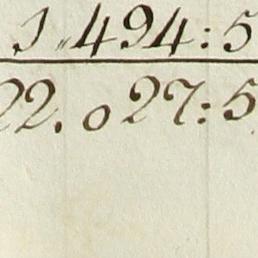 1 „ 494:5
22. 027:5